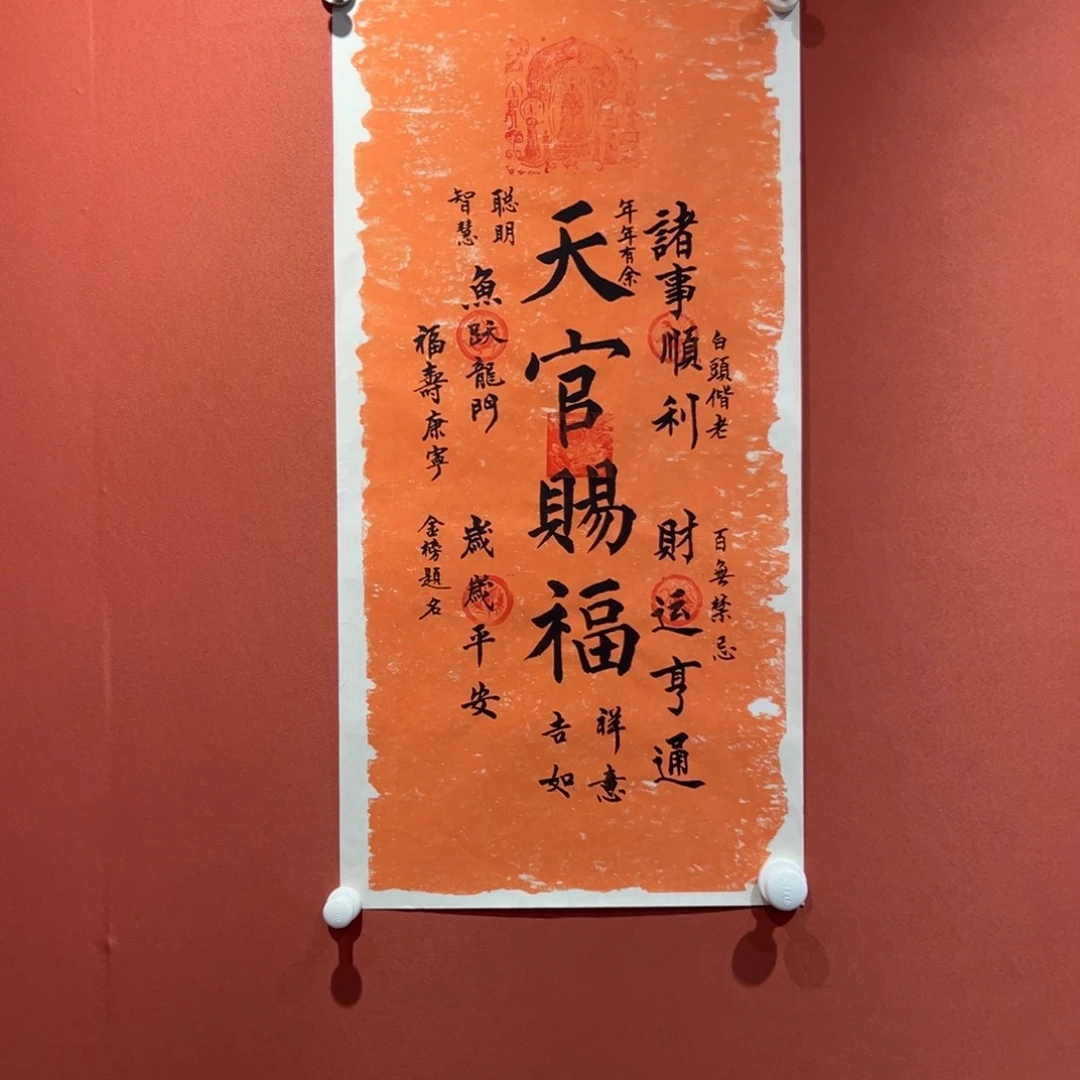 白頭偕老
百無禁忌
諸事順利
財运亨通
年年有余
天官賜福
吉祥如意
聪明智慧
魚跃龍門
歲歲平安
福壽康寧
金榜題名